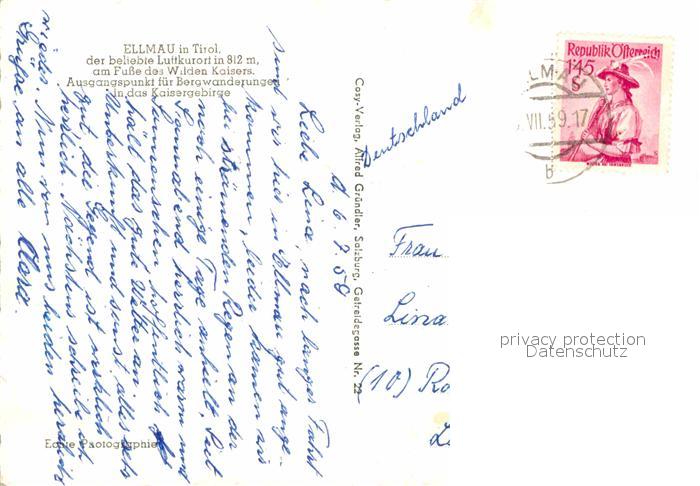 ELLMAU in Tirol,
der beliebte Luftkurort in 812 m,
am Fuße des Wilden Kaisers.
Ausgangspunkt für Bergwanderungen
in das Kaisergebirge
Echte Photographie
Cosy-Verlag, Alfred Gründler, Salzburg, Getreidegasse Nr. 22
Liebe Lina, nach langer Fahrt
sind wir hie in Ellmau gut ange-
kommen, leider kamen wir
bei strömenden Regen an der
noch einige Tage anhielt. Seit
Sonnabend herrlich warm und
Sonnenschein, hoffentlich
hält das gute Wetter an.
Unterkunft und sonst alles sehr
gut, die Gegend ist wirklich
herrlich. Nächstens schreibe ich
Nun von uns beiden herzliche
Grüße an alle Clara.
Deutschland
Frau
Lina
(10) Ro
Republik Österreich
1'45
S
VII.59.17
b
privacy protection
Datenschutz